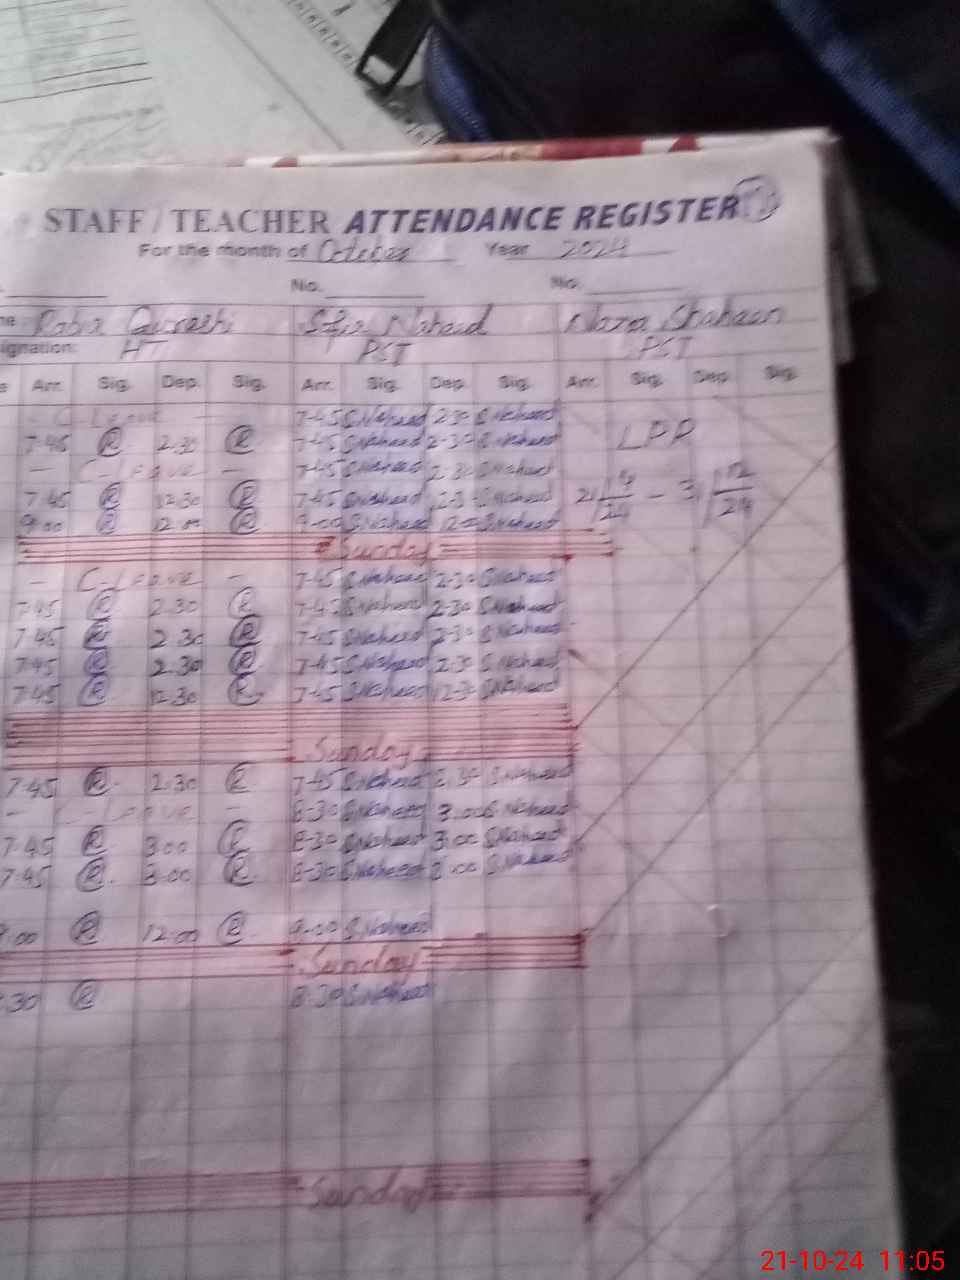 STAFF / TEACHER ATTENDANCE REGISTER
For the month of October Year 2024
No. No.
Rabia Qureshi Safia Naheed Nazra Shaheen
signation: HT PST PST
Arr. Sig. Dep. Sig. Arr. Sig. Dep. Sig. Arr. Sig. Dep. Sig.
- C-Leave - 7-45 S.Naheed 2-30 S.Naheed
7-45 R 2.30 R 7-45 S.Naheed 2-30 S.Naheed LPR
- C-Leave - 7-45 S.Naheed 2-30 S.Naheed
7-45 R 12.30 R 7-45 S.Naheed S.Naheed
9:00 R 12:00 R 9-00 S.Naheed 12:00 S.Naheed
Sunday
- C-Leave - 7-45 S.Naheed 2-30 S.Naheed
7-45 R 2.30 R 7-45 S.Naheed 2-30 S.Naheed
7-45 R 2.30 R 7-45 S.Naheed 2-30 S.Naheed
7-45 R 2.30 R 7-45 S.Naheed 2-30 S.Naheed
7-45 R 12.30 R 7-45 S.Naheed 12-30 S.Naheed
Sunday
7-45 R 2.30 R 7-45 S.Naheed 2-30 S.Naheed
- C-Leave - 8-30 S.Naheed 3.00 S.Naheed
7-45 R 3:00 R 8-30 S.Naheed 3.00 S.Naheed
7-45 R 3:00 R 8-30 S.Naheed 3.00 S.Naheed
:00 R 12:00 R 9-00 S.Naheed
Sunday
:30 R 8-30 S.Naheed
Sunday
21-10-24 11:05